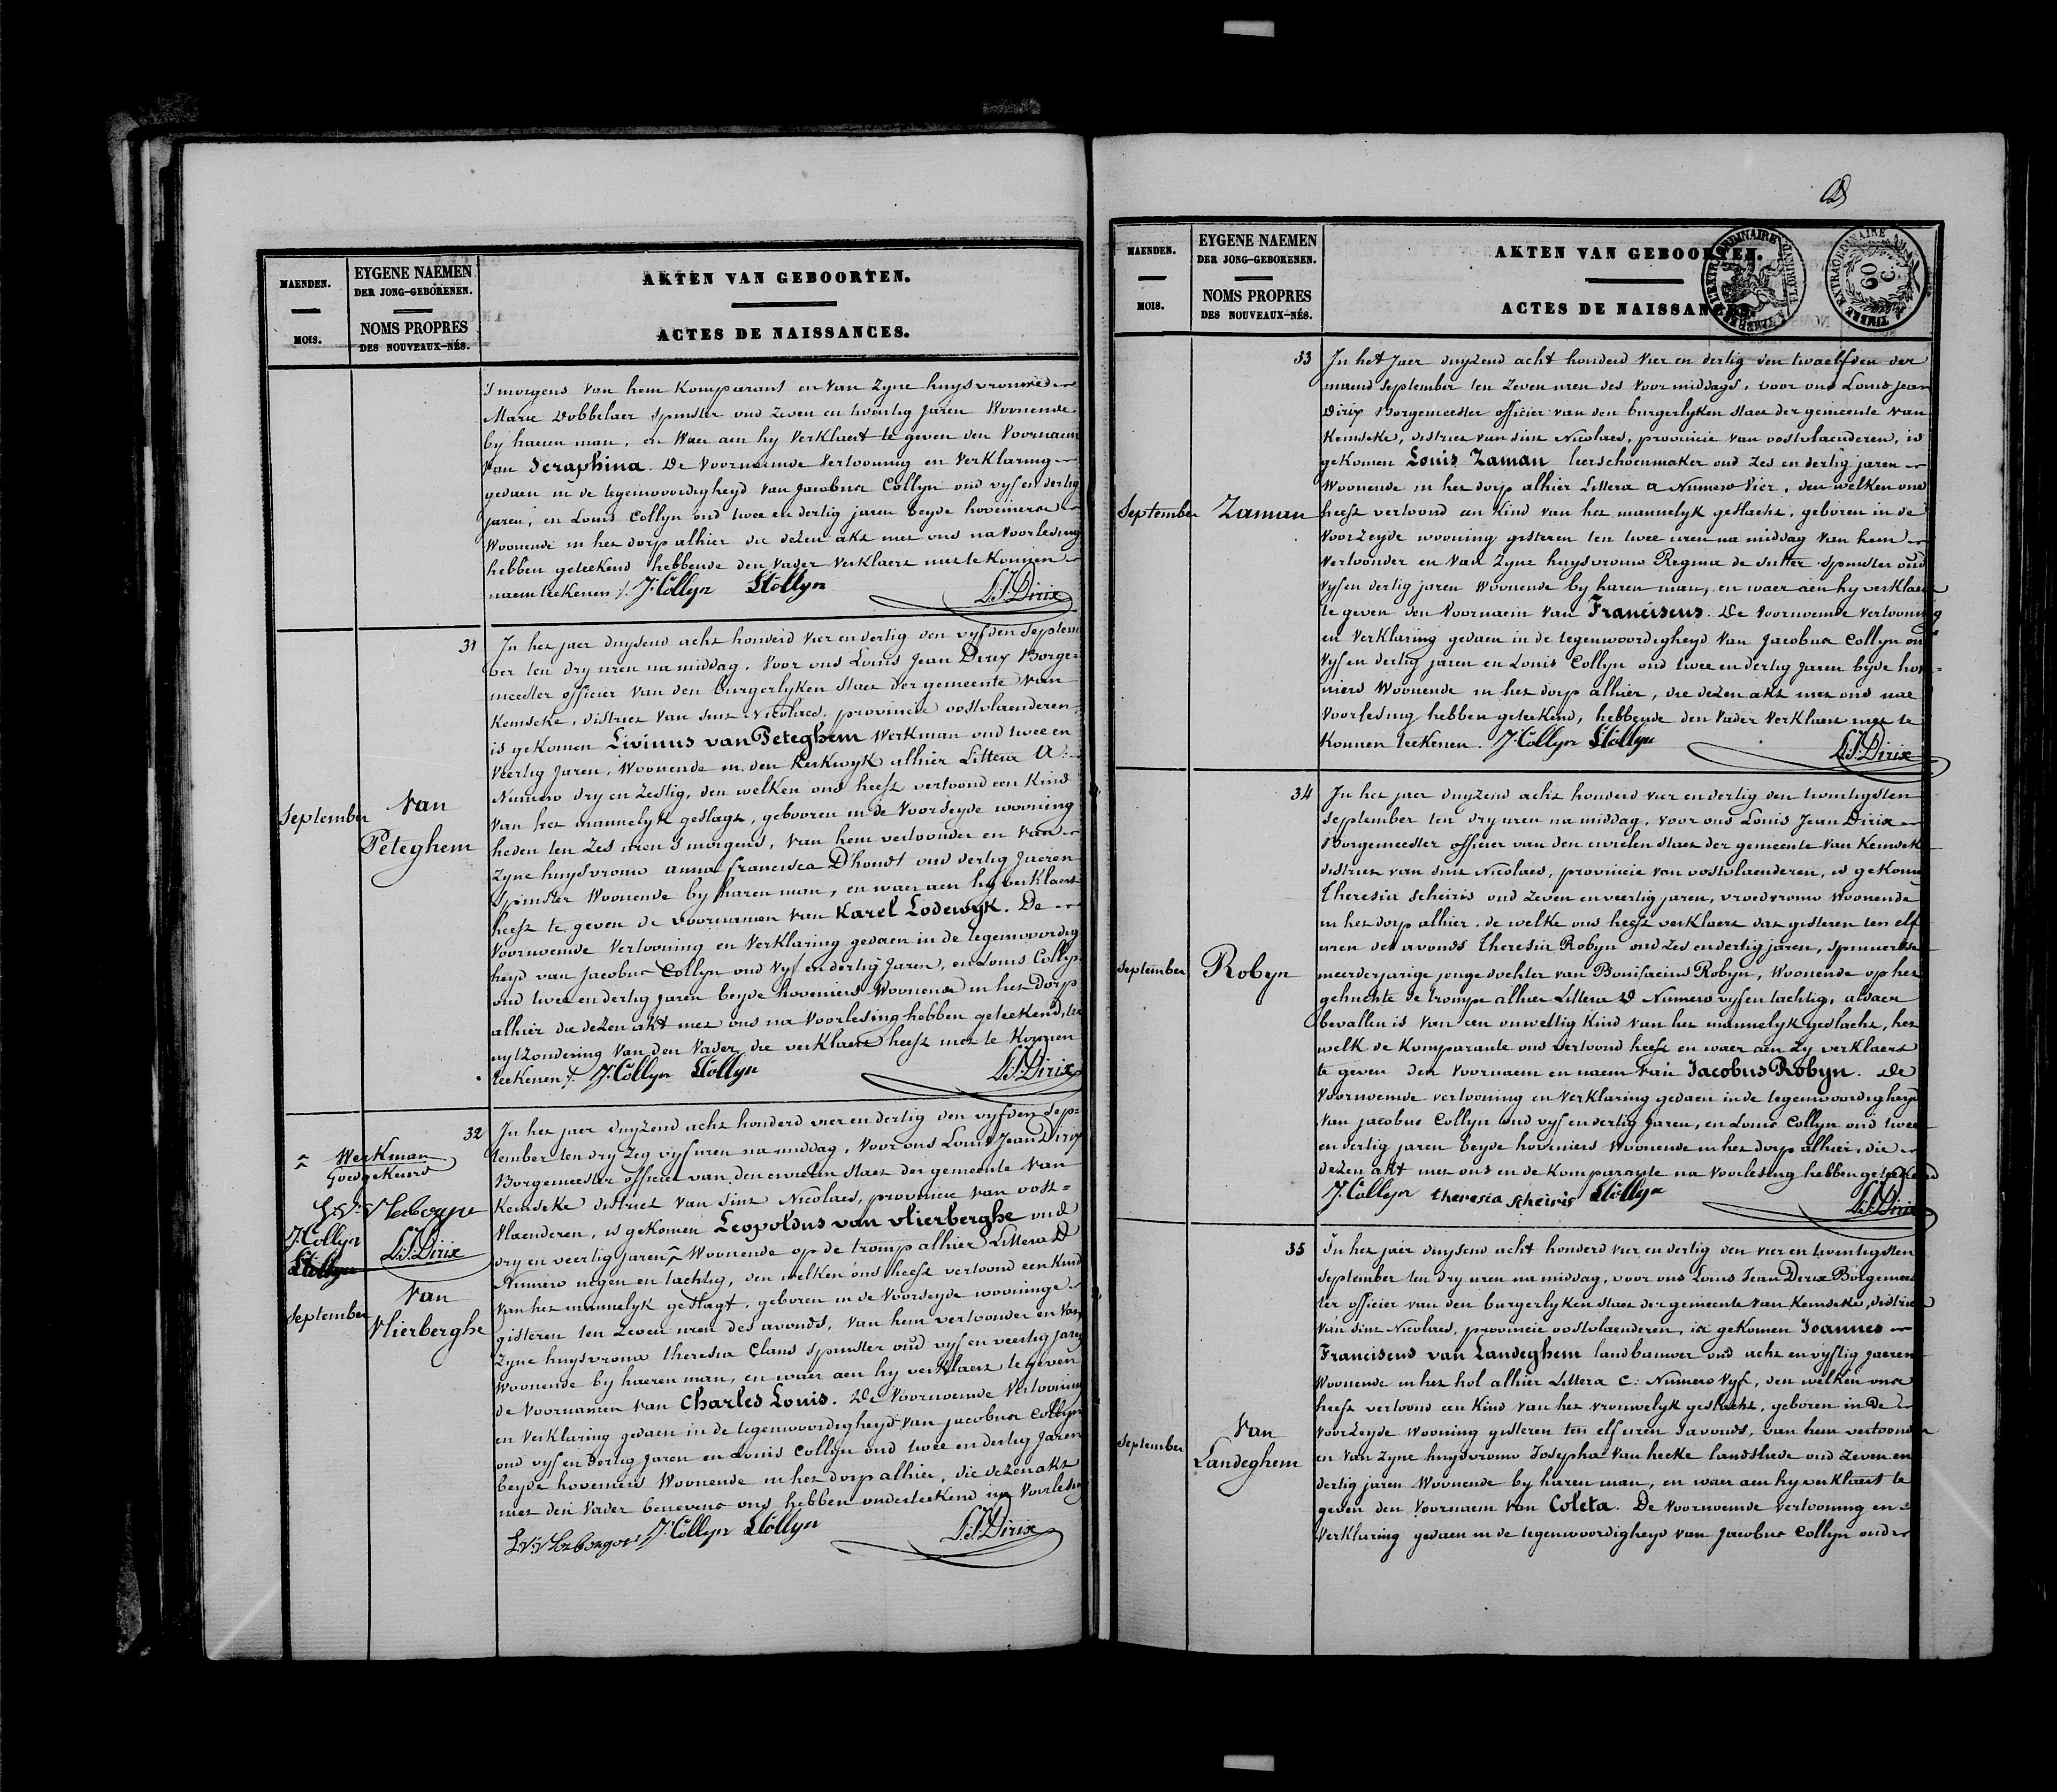 MAENDEN.
MOIS.
EYGENE NAEMEN
DER JONG-GEBORENEN.
NOMS PROPRES
DES NOUVEAUX-NÉS.
AKTEN VAN GEBOORTEN.
ACTES DE NAISSANCES.
'S morgens van hem Komparant en van zyne huysvrouwe
Marie Dobbelaer spinster oud zeven en twintig jaren Woonende
by haeren man, en waer aen hy verklaert te geven den voornaem
van Seraphina. De voornoemde vertooning en verklaring
gedaen in de tegenwoordigheyd van Jacobus Collyn oud vyf en dertig
jaren, en Louis Collyn oud twee en dertig jaren beyde hoveniers
Woonende in het dorp alhier die dezen akt met ons na voorlesing
hebben geteekend hebbende den vader verklaert niet te Konnen
naemteekenen ./. J. Collyn L Collyn L.J. Dirix
September
Van
Peteghem
31
In het jaer duysend acht honderd vier en dertig den vyfden Septem
ber ten dry uren na middag, voor ons Louis Jean Dirix Borge=
meester officier van den burgerlyken staet der gemeente van
Kemseke, district van sint Nicolaes, provincie oostvlaenderen,
is gekomen Livinus van Peteghem Werkman oud twee en
veertig jaren, Woonende in den Kerkwyk alhier Littera A.
Numero dry en zestig, den welken ons heeft vertoond een Kind
van het mannelyk geslagt, gebooren in de voorseyde wooning
heden ten zes uren s'morgens, van hem vertoonder en van
zyne huysvrouw anna francisca D'hondt oud dertig jaeren
spinster Woonende by haren man, en waer aen hy verklaert
heeft te geven de voornamen van Karel Lodewyk. De
voornoemde vertooning en verklaring gedaen in de tegenwoordig
heyd van Jacobus Collyn oud vyf en dertig jaren, en Louis Collyn
oud twee en dertig jaren beyde hoveniers Woonende in het dorp
alhier die dezen akt met ons na voorlesing hebben geteekend, ter
uytzondering van den vader die verklaert heeft niet te Konnen
teekenen ./. J. Collyn L Collyn L.J. Dirix
Werkman
Goedgekeurd
J. Collyn
L Collyn
L.J. Dirix
September
Van
Vlierberghe
32
In het jaer duyzend acht honderd vier en dertig den vyfden Sep=
tember ten dry zeg vyf uren na middag, voor ons Louis Jean Dirix
Borgemeester officier van den civielen staet der gemeente van
Kemseke district van sint Nicolaes, provincie van oost=
vlaenderen, is gekomen Leopoldus van vlierberghe oud
dry en veertig jaren Woonende op de tromp alhier Littera D
Numero negen en tachtig, den welken ons heeft vertoond een Kind
van het mannelyk geslagt, geboren in de voorseyde wooninge
gisteren ten zeven uren des avonds, van hem vertoonder en van
zyne huysvrouw theresia Claus spinster oud vyf en veertig jaren
woonende by haeren man, en waer aen hy verklaert te geven
de voornamen van Charles Louis. De voornoemde vertooning
en verklaring gedaen in de tegenwoordigheyd van jacobus Collyn
oud vyf en dertig jaren en Louis Collyn oud twee en dertig jaren
beyde hoveniers Woonende in het dorp alhier, die dezen akt
met den vader benevens ons hebben onderteekend na voorlesing
J. Collyn L Collyn L.J. Dirix
MAENDEN.
MOIS.
EYGENE NAEMEN
DER JONG-GEBORENEN.
NOMS PROPRES
DES NOUVEAUX-NÉS.
AKTEN VAN GEBOORTEN.
ACTES DE NAISSANCES.
TIMBRE EXTRAORDINAIRE
60 C
September
Zaman
33
In het Jaer duyzend acht honderd vier en dertig den twaelfden der
maend September ten zeven uren des voormiddags, voor ons Louis jean
Dirix Borgemeester officier van den burgerlyken staet der gemeente van
Kemseke, district van sint Nicolaes, provincie van oostvlaenderen, is
gekomen Louis Zaman leerschoenmaker oud zes en dertig jaren
Woonende in het dorp alhier Littera A Numero vier, den welken ons
heeft vertoond een Kind van het mannelyk geslacht, geboren in de
voorzeyde wooning gisteren ten twee uren na middag van hem
vertoonder en van zyne huysvrouw Regina de Sutter spinster oud
vyf en dertig jaren Woonende by haren man, en waer aen hy verklaert
te geven den voornaem van Franciscus. De voornoemde vertooning
en verklaring gedaen in de tegenwoordigheyd van Jacobus Collyn oud
vyf en dertig jaren en Louis Collyn oud twee en dertig jaren beyde hove=
niers Woonende in het dorp alhier, die dezen akt met ons nae
voorlesing hebben geteekend, hebbende den vader verklaert niet te
Konnen teekenen. J. Collyn L Collyn L.J. Dirix
September
Robyn
34
In het jaer duyzend acht honderd vier en dertig den twintigsten
September ten dry uren na middag, voor ons Louis Jean Dirix
Borgemeester officier van den civielen staet der gemeente van Kemseke
district van sint Nicolaes, provincie van oostvlaenderen, is gekomen
Theresia Scheiris oud zeven en veertig jaren, vroedvrouw Woonende
in het dorp alhier, de welke ons heeft verklaert dat gisteren ten elf
uren des avonds Theresia Robyn oud zes en dertig jaren, spinneresse
meerderjarige jonge dochter van Bonifacius Robyn, Woonende op het
gehuchte de trompe alhier Littera D Numero vyf en tachtig, aldaer
bevallen is van een onwettig Kind van het mannelyk geslacht, het
welk de Komparante ons vertoond heeft en waer aen zy verklaert
te geven den voornaem en naem van Jacobus Robyn. De
voornoemde vertooning en verklaring gedaen in de tegenwoordigheyd
van jacobus Collyn oud vyf en dertig jaren, en Louis Collyn oud twee
en dertig jaren beyde hoveniers Woonende in het dorp alhier, die
dezen akt met ons en de Komparante na voorlesing hebben geteekend
J. Collyn theresia scheiris L Collyn L.J. Dirix
September
Van
Landeghem
35
In het jaer duysend acht honderd vier en dertig den vier en twintigsten
September ten dry uren na middag, voor ons Louis Jean Dirix Borgemees
ter officier van den burgerlyken staet der gemeente van Kemseke, district
van sint Nicolaes, provincie oostvlaenderen, is gekomen Joannes
Franciscus van Landeghem landbouwer oud acht en vyftig jaeren
Woonende in het hol alhier Littera C: Numero vyf, den welken ons
heeft vertoond een Kind van het vrouwelyk geslacht, geboren in de
voorzeyde wooning gisteren ten elf uren s'avonds, van hem vertoonder
en van zyne huysvrouw Josepha van hecke landsliede oud zeven en
dertig jaren Woonende by haren man, en waer aen hy verklaert te
geven den voornaem van Coleta. De voornoemde vertooning en
verklaring gedaen in de tegenwoordigheyd van Jacobus Collyn oud